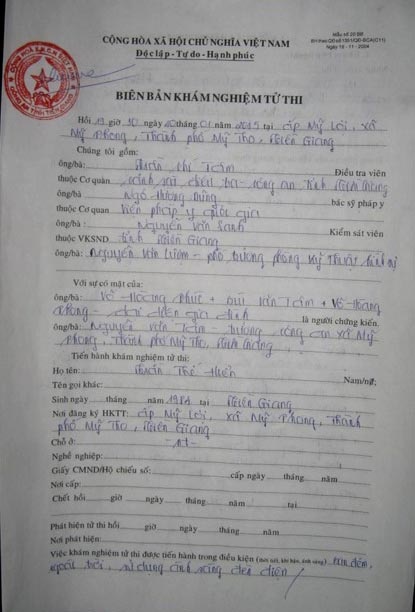 CỘNG HÒA XÃ HỘI CHỦ NGHĨA VIỆT NAM
Độc lập - Tự do - Hạnh phúc
Mẫu số 20 Bđ
BH theo QĐ số 1351/QĐ-BCA(C11)
Ngày 18 - 11 - 2004
BIÊN BẢN KHÁM NGHIỆM TỬ THI
Hồi 19 giờ 10, ngày 10 tháng 01 năm 2015 tại ấp Mỹ Lợi, xã
Mỹ Phong, Thành phố Mỹ Tho, Tiền Giang
Chúng tôi gồm:
ông/bà: Thị Tám Điều tra viên
thuộc Cơ quan cảnh sát điều tra - công an tỉnh Tiền Giang
ông/bà Ngô bác sỹ pháp y
thuộc Cơ quan Viện pháp y quốc gia
ông/bà: Nguyễn Văn Kiểm sát viên
thuộc VKSND tỉnh Tiền Giang
ông/bà: Nguyễn Văn - phó trưởng phòng kỹ thuật hình sự
Với sự có mặt của:
ông/bà: Võ Hoàng Phúc + Bùi Văn Tám + Võ Hoàng
Phong - đại diện gia đình là người chứng kiến.
ông/bà: Nguyễn Văn - trưởng công an xã Mỹ
Phong, Thành phố Mỹ Tho, Tiền Giang
Tiến hành khám nghiệm tử thi:
Họ tên: Thế Hiền Nam/nữ:
Tên gọi khác:
Sinh ngày tháng năm 1984 tại Tiền Giang
Nơi đăng ký HKTT: ấp Mỹ Lợi, xã Mỹ Phong, Thành
phố Mỹ Tho, Tiền Giang
Chỗ ở: -nt-
Nghề nghiệp:
Giấy CMND/Hộ chiếu số: cấp ngày tháng năm
Nơi cấp:
Chết hồi giờ ngày tháng năm tại
Phát hiện tử thi hồi giờ ngày tháng năm
Nơi phát hiện:
Việc khám nghiệm tử thi được tiến hành trong điều kiện (thời tiết, khí hậu, ánh sáng) ban đêm,
ngoài trời, sử dụng ánh sáng đèn điện